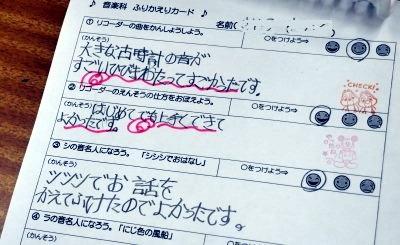 ♪ 音楽科 ふりかえりカード ♪
名前(
① リコーダーの曲をかんしょうしよう。
○をつけよう⇒
(かんそう)
大きな古時計の音が
すごいひびきわたってすごかったです。
CHECK!
② リコーダーのえんそうの仕方をおぼえよう。
○をつけよう⇒
(かんそう)
はじめてでも上手にできて
よかったです。
③ シの音名人になろう。 「シシシでおはなし」
○をつけよう⇒
(かんそう)
シシシでお話を
かえてふけたのでよかったです。
④ ラの音名人になろう。「にじ色の風船」
(かんそう)
○をつけよう